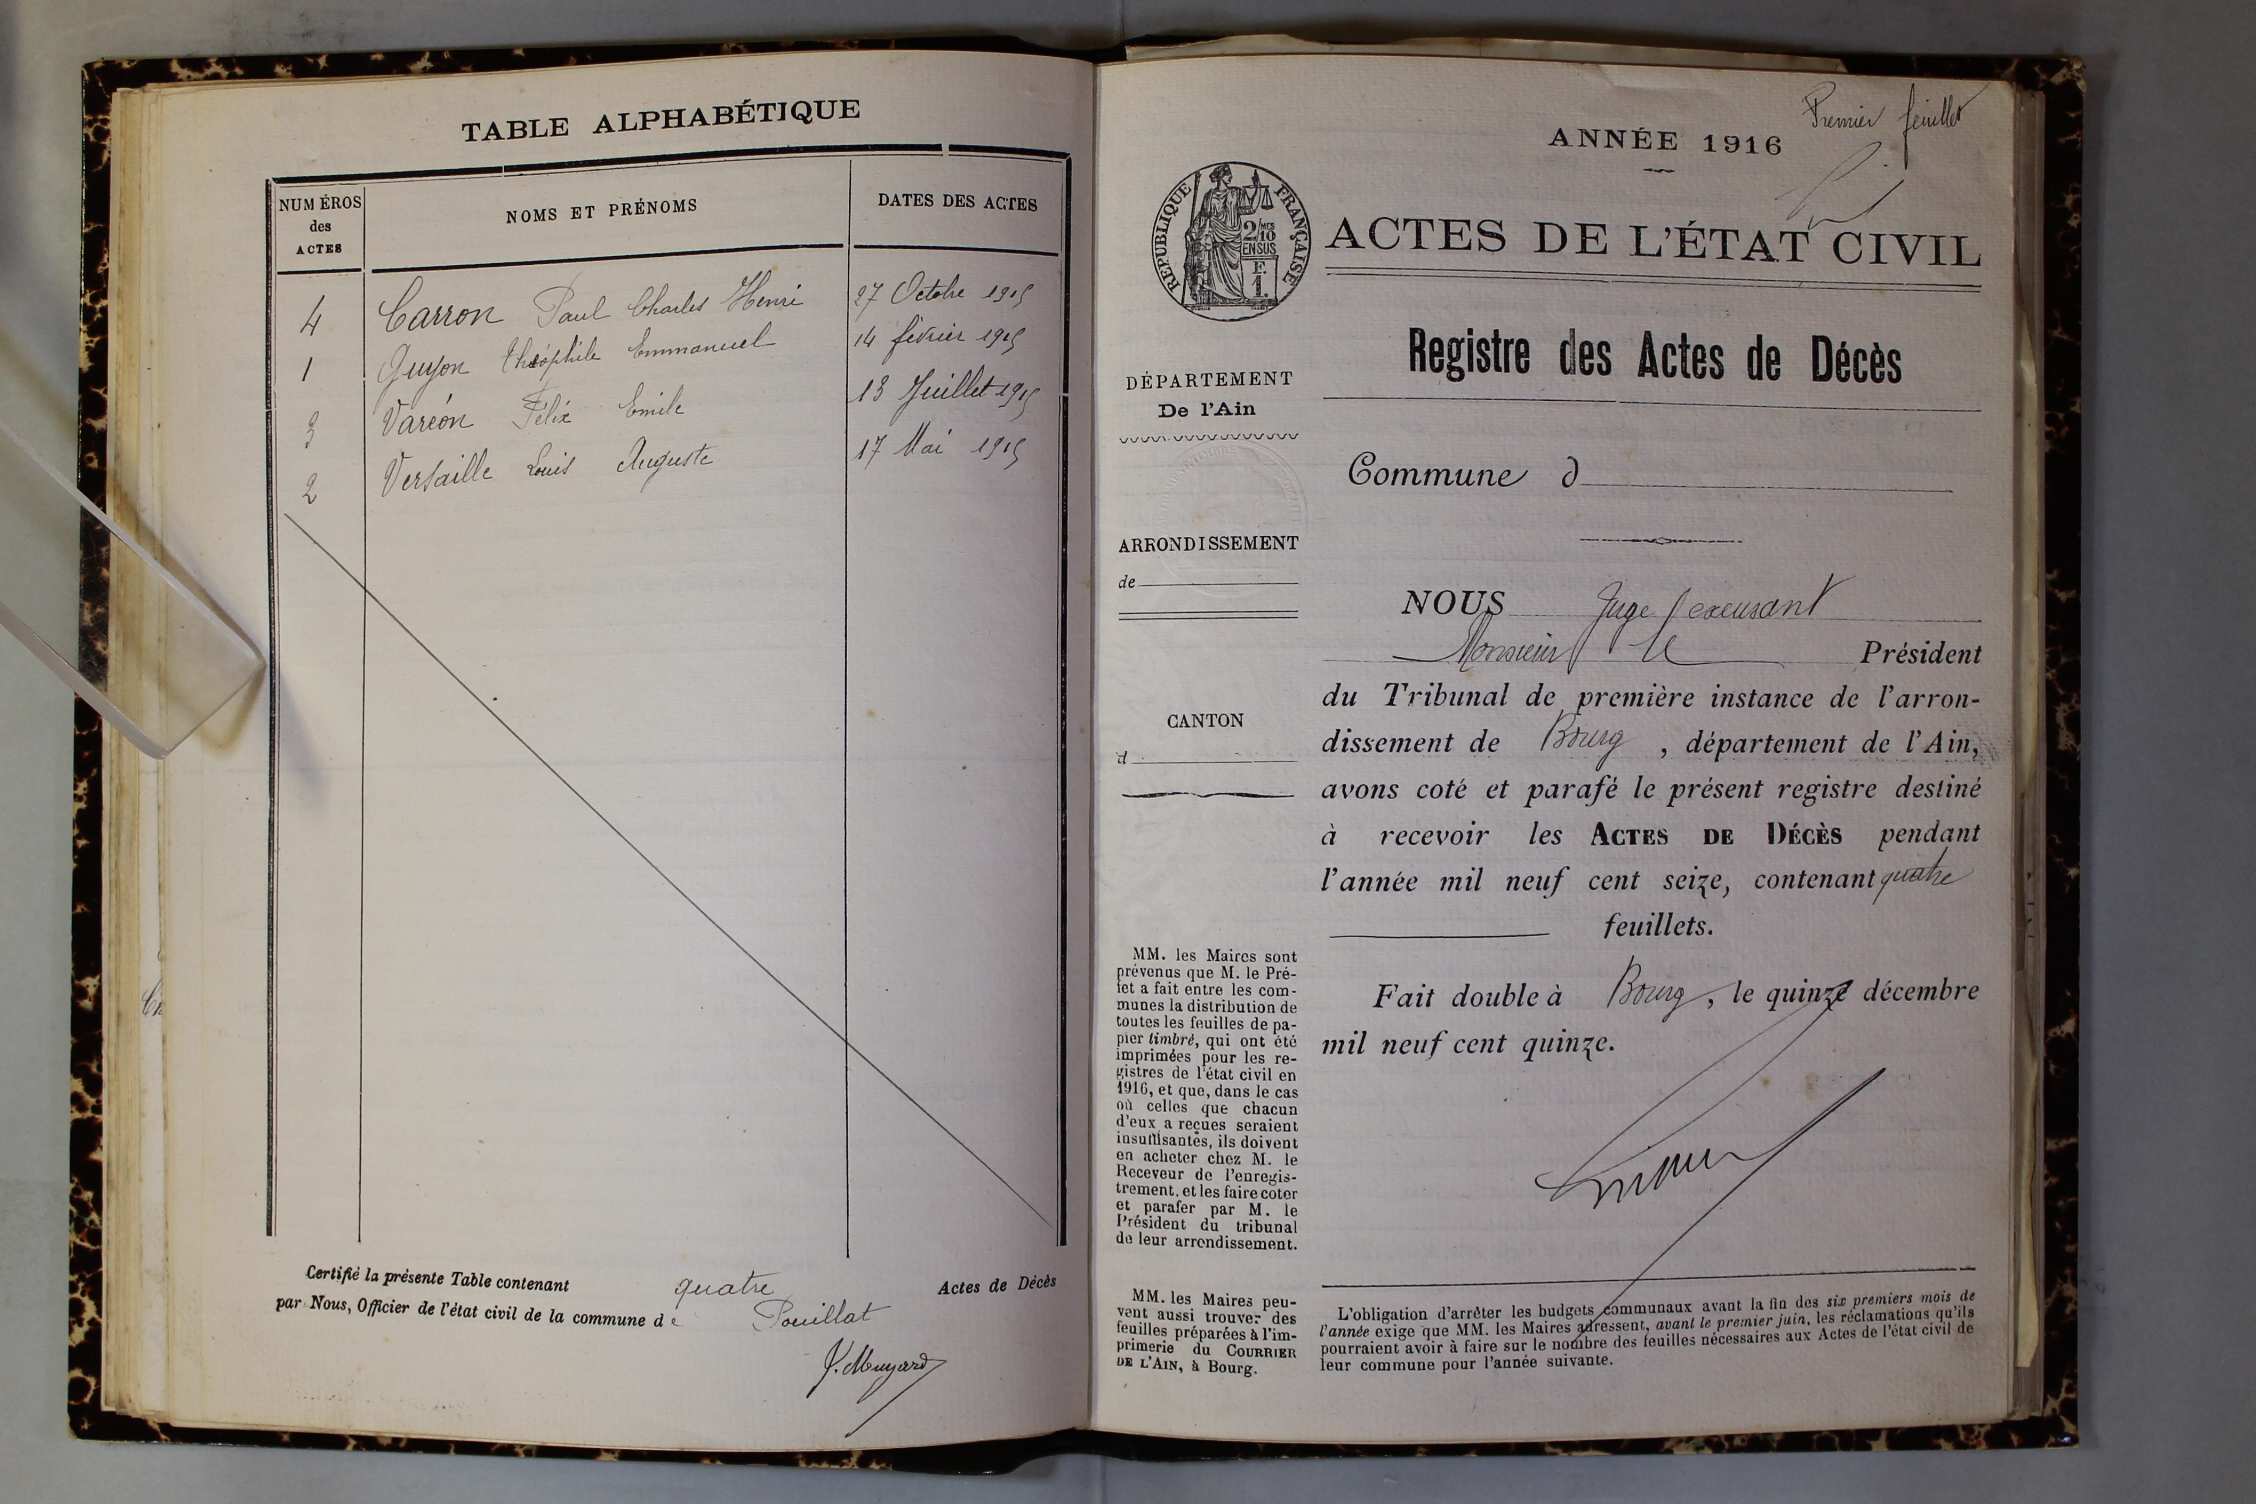 TABLE ALPHABÉTIQUE
NUMÉROS
des
ACTES
NOMS ET PRÉNOMS
DATES DES ACTES
4 Carron Paul Charles Henri 27 Octobre 1915
1 Guyon Théophile Emmanuel 14 février 1915
3 Varéon Félix Emile 13 Juillet 1915
2 Versaille Louis Auguste 17 Mai 1915
Certifié la présente Table contenant quatre Actes de Décès
par Nous, Officier de l'état civil de la commune de Pouillat
Premier feuillet
ANNÉE 1916
RÉPUBLIQUE FRANÇAISE
2/10 MES
EN SUS
F.
1.
ACTES DE L'ÉTAT CIVIL
Registre des Actes de Décès
DÉPARTEMENT
De l'Ain
Commune d
ARRONDISSEMENT
de
CANTON
d
NOUS Juge excusant
Monsieur le Président
du Tribunal de première instance de l'arron-
dissement de Bourg, département de l'Ain,
avons coté et parafé le présent registre destiné
à recevoir les ACTES DE DÉCÈS pendant
l'année mil neuf cent seize, contenant quatre
feuillets.
Fait double à Bourg, le quinze décembre
mil neuf cent quinze.
MM. les Maires sont
prévenus que M. le Pré-
fet a fait entre les com-
munes la distribution de
toutes les feuilles de pa-
pier timbré, qui ont été
imprimées pour les re-
gistres de l'état civil en
1916, et que, dans le cas
où celles que chacun
d'eux a reçues seraient
insuffisantes, ils doivent
en acheter chez M. le
Receveur de l'enregis-
trement, et les faire coter
et parafer par M. le
Président du tribunal
de leur arrondissement.
MM. les Maires peu-
vent aussi trouver des
feuilles préparées à l'im-
primerie du COURRIER
DE L'AIN, à Bourg.
L'obligation d'arrêter les budgets communaux avant la fin des six premiers mois de
l'année exige que MM. les Maires adressent, avant le premier juin, les réclamations qu'ils
pourraient avoir à faire sur le nombre des feuilles nécessaires aux Actes de l'état civil de
leur commune pour l'année suivante.